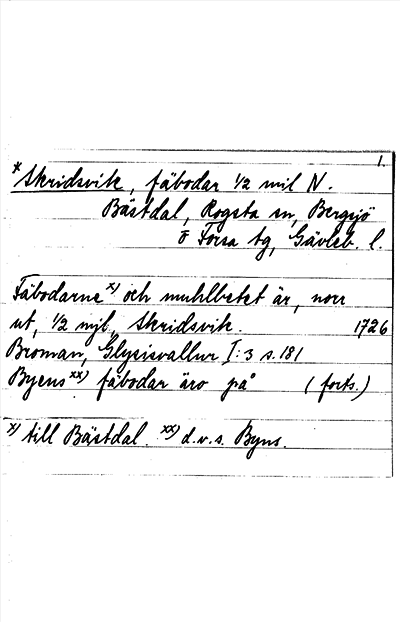 1.
* Skridsvik, fäbodar 1/2 mil N.
Bästdal, Rogsta sn, Bergsjö
o Forsa tg, Gävleb. l.
Fäbodarne x) och muhlbetet är, norr
ut, 1/2 mjl, Skridsvik. 1726
Broman, Glysisvallur I:3 s. 181
Byens xx) fäbodar äro på (forts.)
x) till Bästdal. xx) d.v.s. Byns.